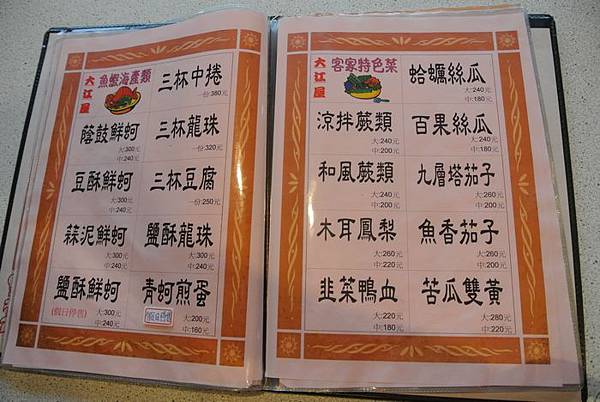 大江屋
魚蝦海產類
三杯中捲
一份380元
蔭鼓鮮蚵
大:300元
中:240元
三杯龍珠
一份:320元
豆酥鮮蚵
大:300元
中:240元
三杯豆腐
一份:250元
蒜泥鮮蚵
大:300元
中:240元
鹽酥龍珠
大:300元
中:240元
鹽酥鮮蚵
(假日停售)
大:300元
中:240元
青蚵煎蛋
大:200元
中:160元
大江屋
客家特色菜
蛤蠣絲瓜
大:240元
中:180元
涼拌蕨類
大:240元
中:200元
百果絲瓜
大:240元
中:180元
和風蕨類
大:240元
中:200元
九層塔茄子
大:260元
中:200元
木耳鳳梨
大:260元
中:220元
魚香茄子
大:260元
中:200元
韭菜鴨血
大:220元
中:180元
苦瓜雙黃
大:280元
中:220元